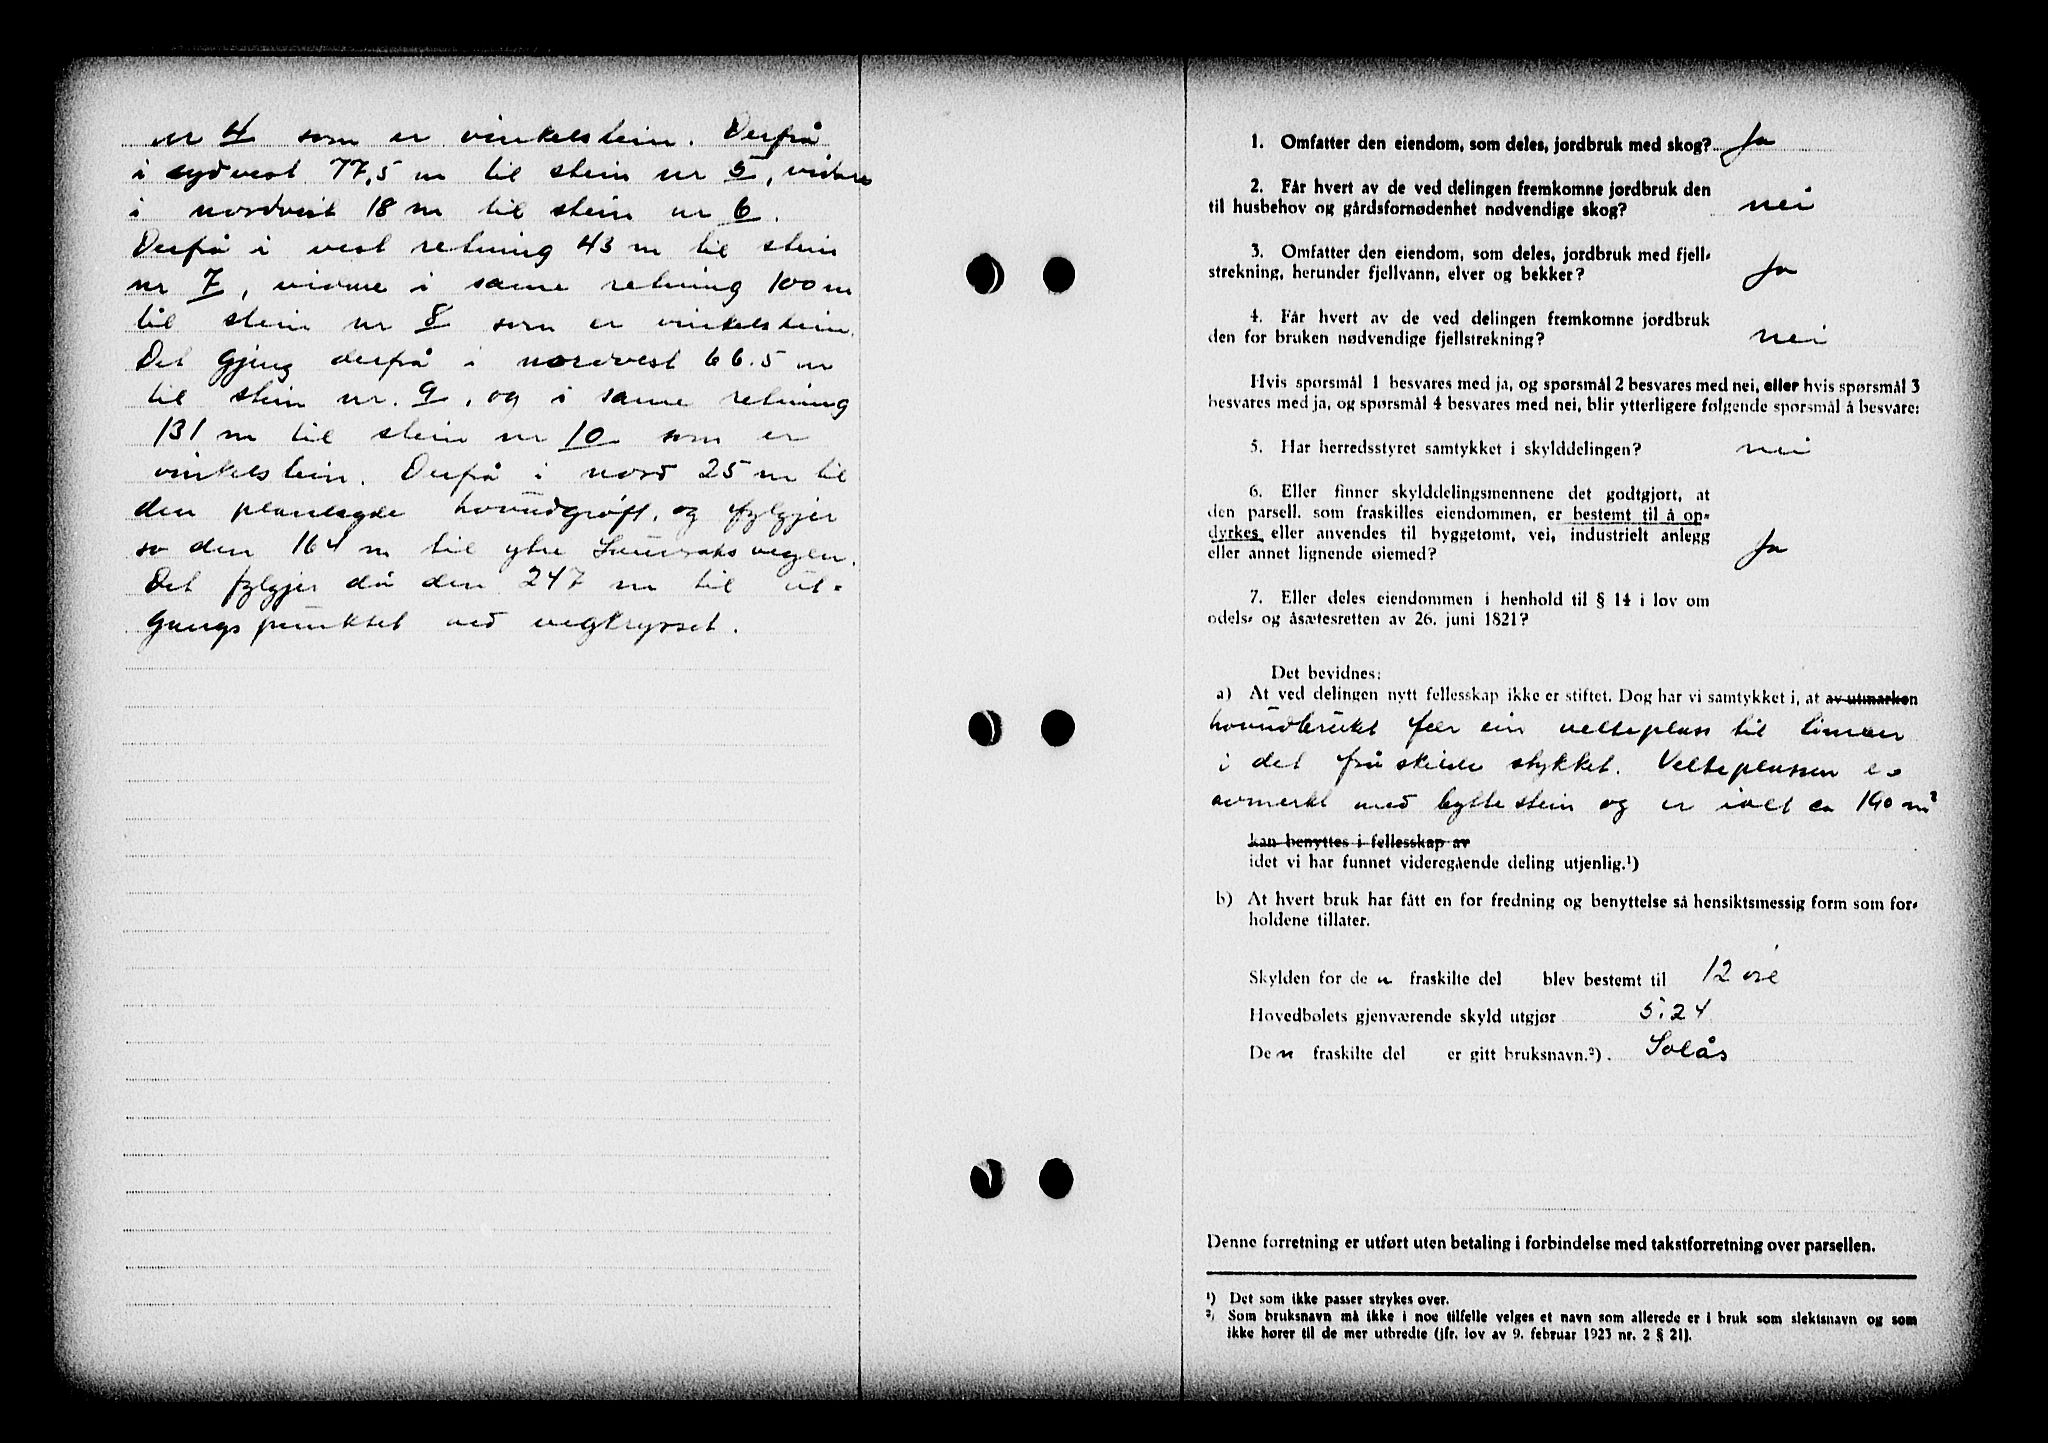 nr 4 som er vinkelstein. Derfrå
i sydvest 77,5 m til stein nr 5, vidare
i nordvest 18 m til stein nr 6.
Derfrå i vest retning 43 m til stein
nr 7, vidare i same retning 100 m
til stein nr 8 som er vinkelstein.
Det gjeng derfrå i nordvest 66.5 m
til stein nr. 9, og i same retning
131 m til stein nr 10 som er
vinkelstein. Derfrå i nord 25 m til
den planlagde hovudgrøft, og fylgjer
so den 164 m til ytre vegen.
Det fylgjer då den 247 m til ut-
gangspunktet ved vegkrysset.
1. Omfatter den eiendom, som deles, jordbruk med skog? Ja
2. Får hvert av de ved delingen fremkomne jordbruk den
til husbehov og gårdsfornødenhet nødvendige skog? nei
3. Omfatter den eiendom, som deles, jordbruk med fjell-
strekning, herunder fjellvann, elver og bekker? Ja
4. Får hvert av de ved delingen fremkomne jordbruk
den for bruken nødvendige fjellstrekning? nei
Hvis spørsmål 1 besvares med ja, og spørsmål 2 besvares med nei, eller hvis spørsmål 3
besvares med ja, og spørsmål 4 besvares med nei, blir ytterligere følgende spørsmål å besvare:
5. Har herredsstyret samtykket i skylddelingen? nei
6. Eller finner skylddelingsmennene det godtgjort, at
den parsell, som fraskilles eiendommen, er bestemt til å op-
dyrkes, eller anvendes til byggetomt, vei, industrielt anlegg
eller annet lignende øiemed? Ja
7. Eller deles eiendommen i henhold til § 14 i lov om
odels- og åsætesretten av 26. juni 1821?
Det bevidnes:
a) At ved delingen nytt fellesskap ikke er stiftet. Dog har vi samtykket i, at av utmarken
hovudbruket fær ein velteplass til timber
i det fråskilde stykket. Velteplassen er
avmerkt med byttestein og er ialt ca 190 m²
kan benyttes i fellesskap av
idet vi har funnet videregående deling utjenlig.¹)
b) At hvert bruk har fått en for fredning og benyttelse så hensiktsmessig form som for-
holdene tillater.
Skylden for de n fraskilte del blev bestemt til 12 øre
Hovedbølets gjenværende skyld utgjør 5.24
De n fraskilte del er gitt bruksnavn.²) Solås
Denne forretning er utført uten betaling i forbindelse med takstforretning over parsellen.
¹) Det som ikke passer strykes over.
²) Som bruksnavn må ikke i noe tilfelle velges et navn som allerede er i bruk som slektsnavn og som
ikke hører til de mer utbredte (jfr. lov av 9. februar 1923 nr. 2 § 21).